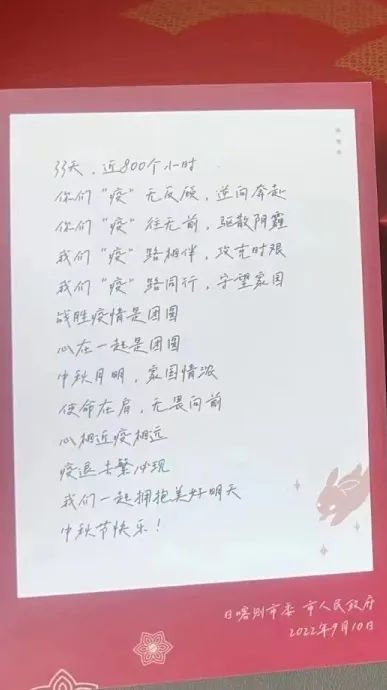 33天，近800个小时
你们“疫”无反顾，逆向奔赴
你们“疫”往无前，驱散阴霾
我们“疫”路相伴，攻克时艰
我们“疫”路同行，守望家国
战胜疫情是团圆
心在一起是团圆
中秋月明，家国情浓
使命在肩，无畏向前
心相近疫相远
疫退去繁必现
我们一起拥抱美好明天
中秋节快乐！
日喀则市委 市人民政府
2022年9月10日